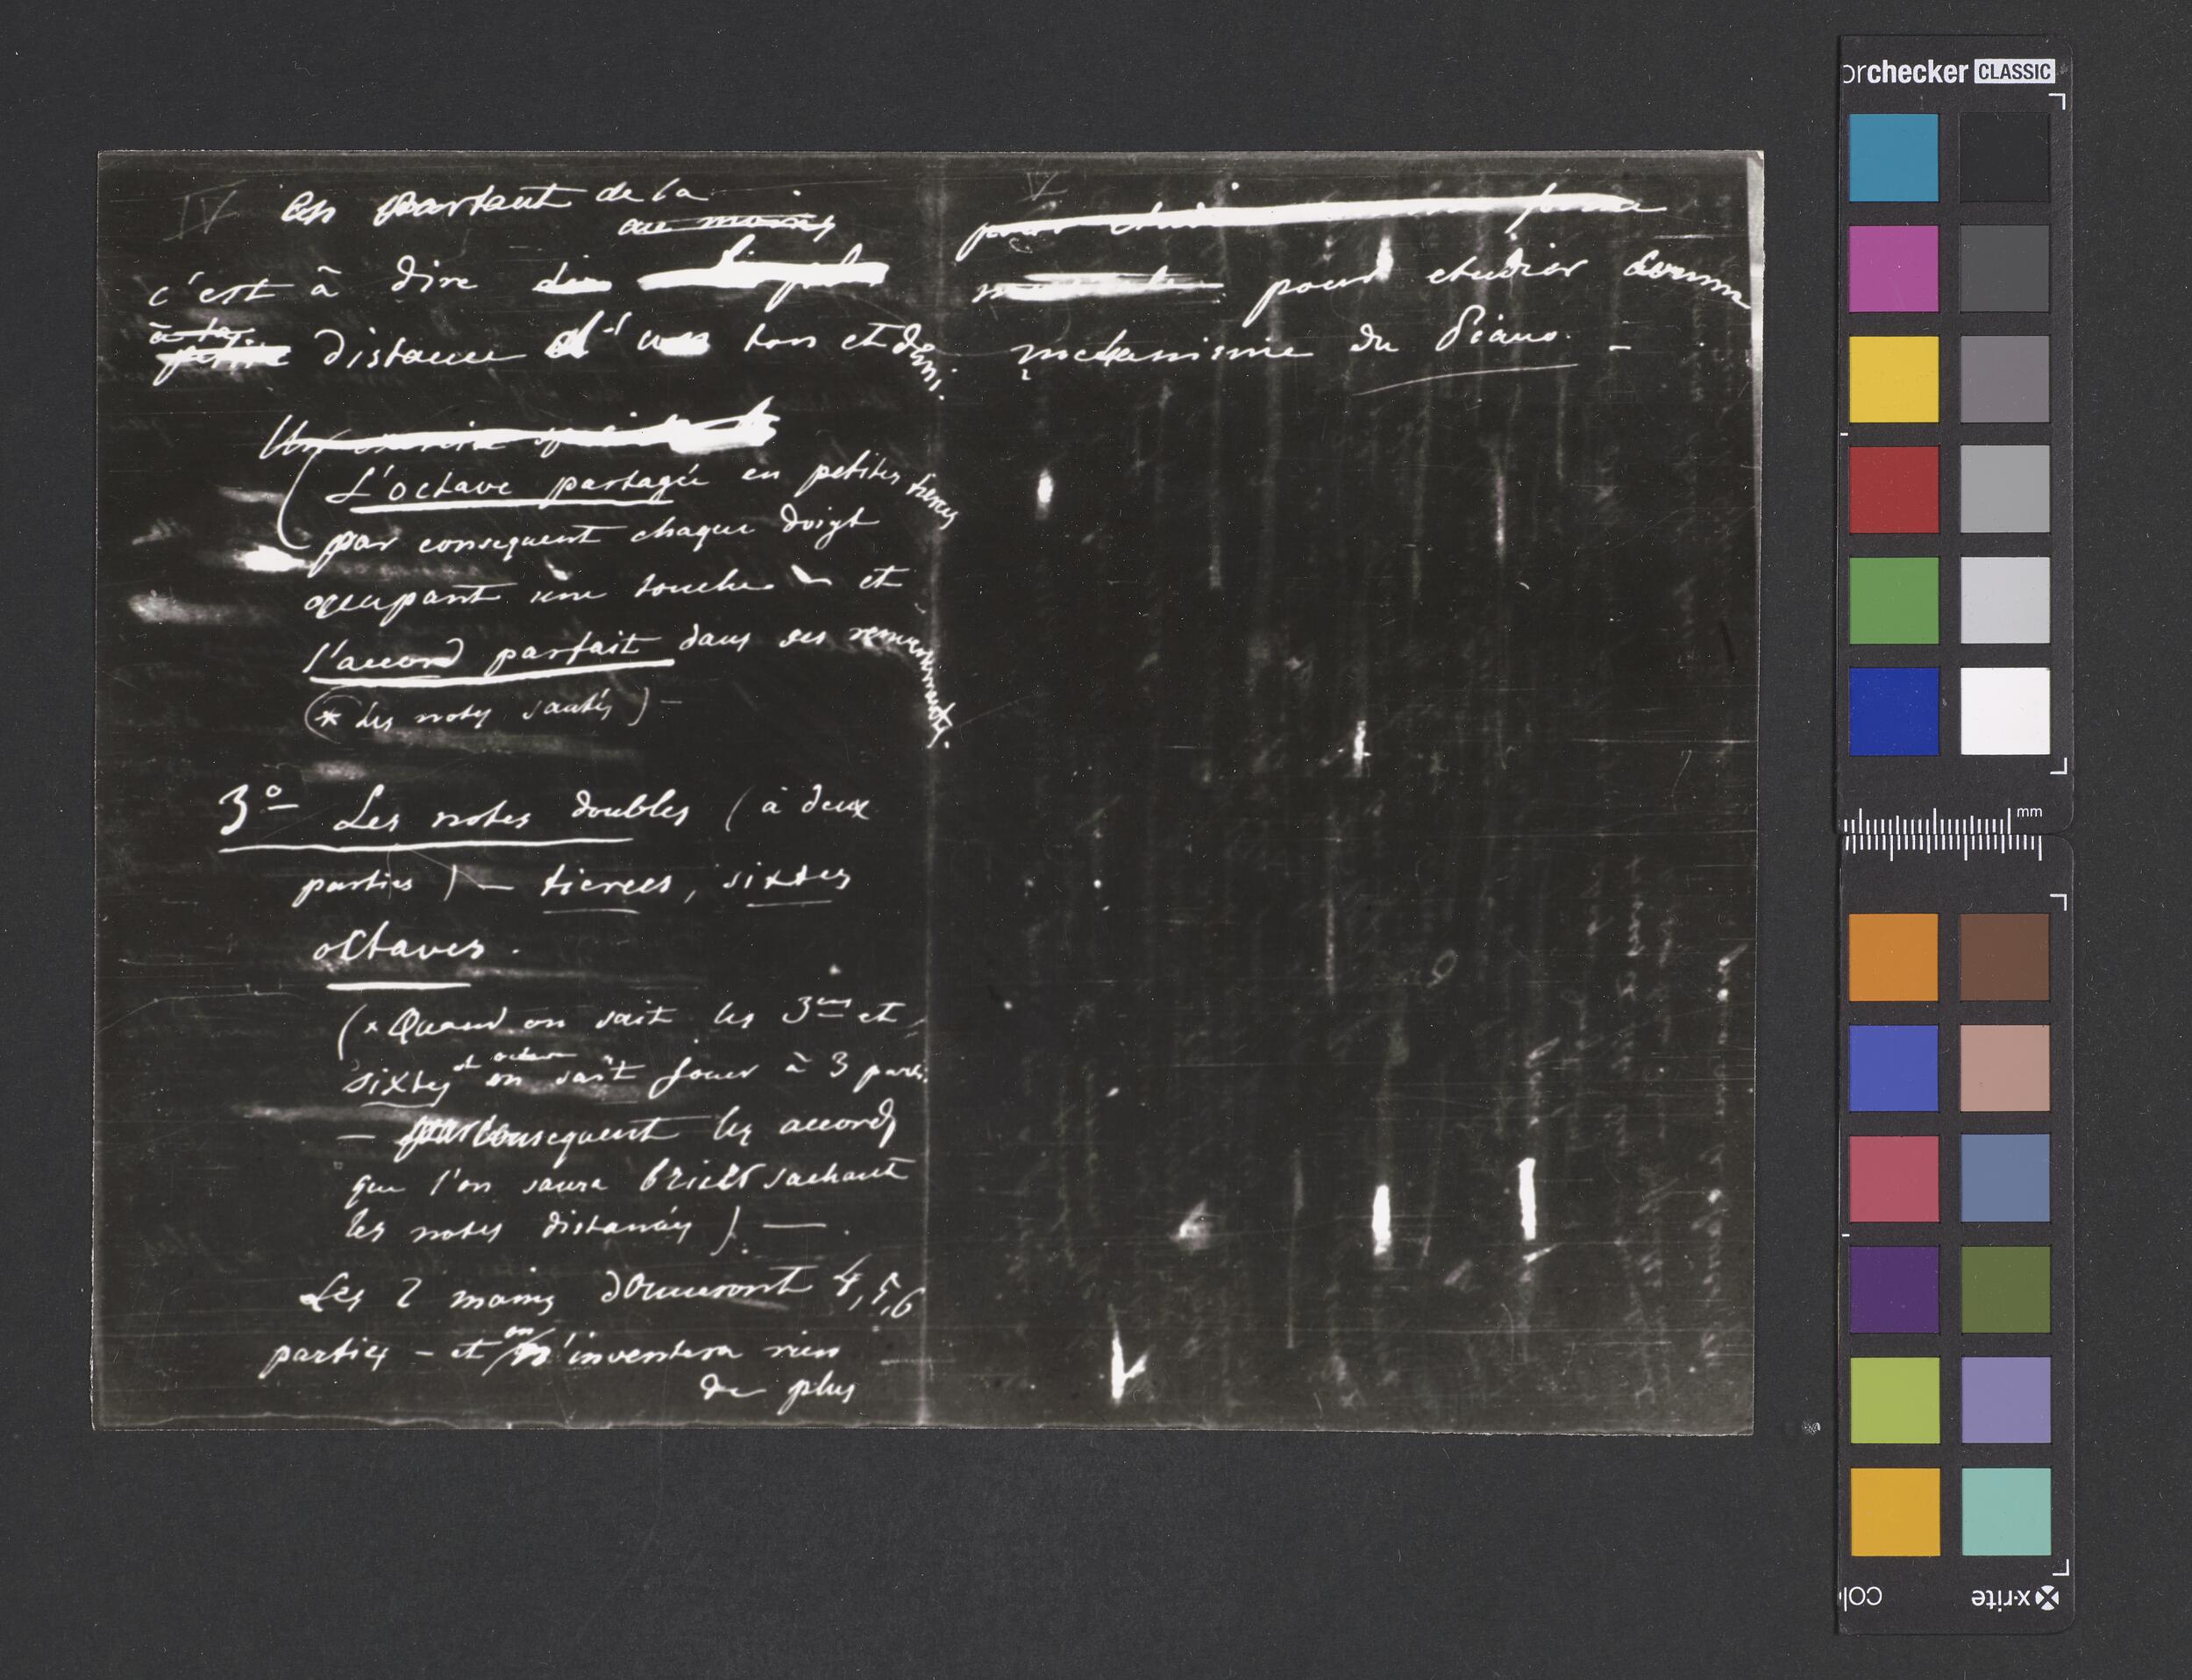 IV
en partant de la
au moins
c'est à dire
distance d'un ton et demi.
L'octave partagée en petites tierces
par consequent chaque doigt
occupant une touche – et
l'accord parfait dans ses renversements.
(* Les notes sautés) –
3º Les notes doubles (à deux
parties) – tierces, sixtes
octaves.
(* Quand on sait les 3ces et
sixtes et octaves on sait jouer à 3 part.
– par consequent les accords
que l'on saura briser sachant
les notes distancés) –.
Les 2 mains donneront 4, 5, 6
parties – et on n'inventera rien
de plus
V
pour etudier comme
mechanisme du Piano. –
orchecker CLASSIC
mm
x·rite
col